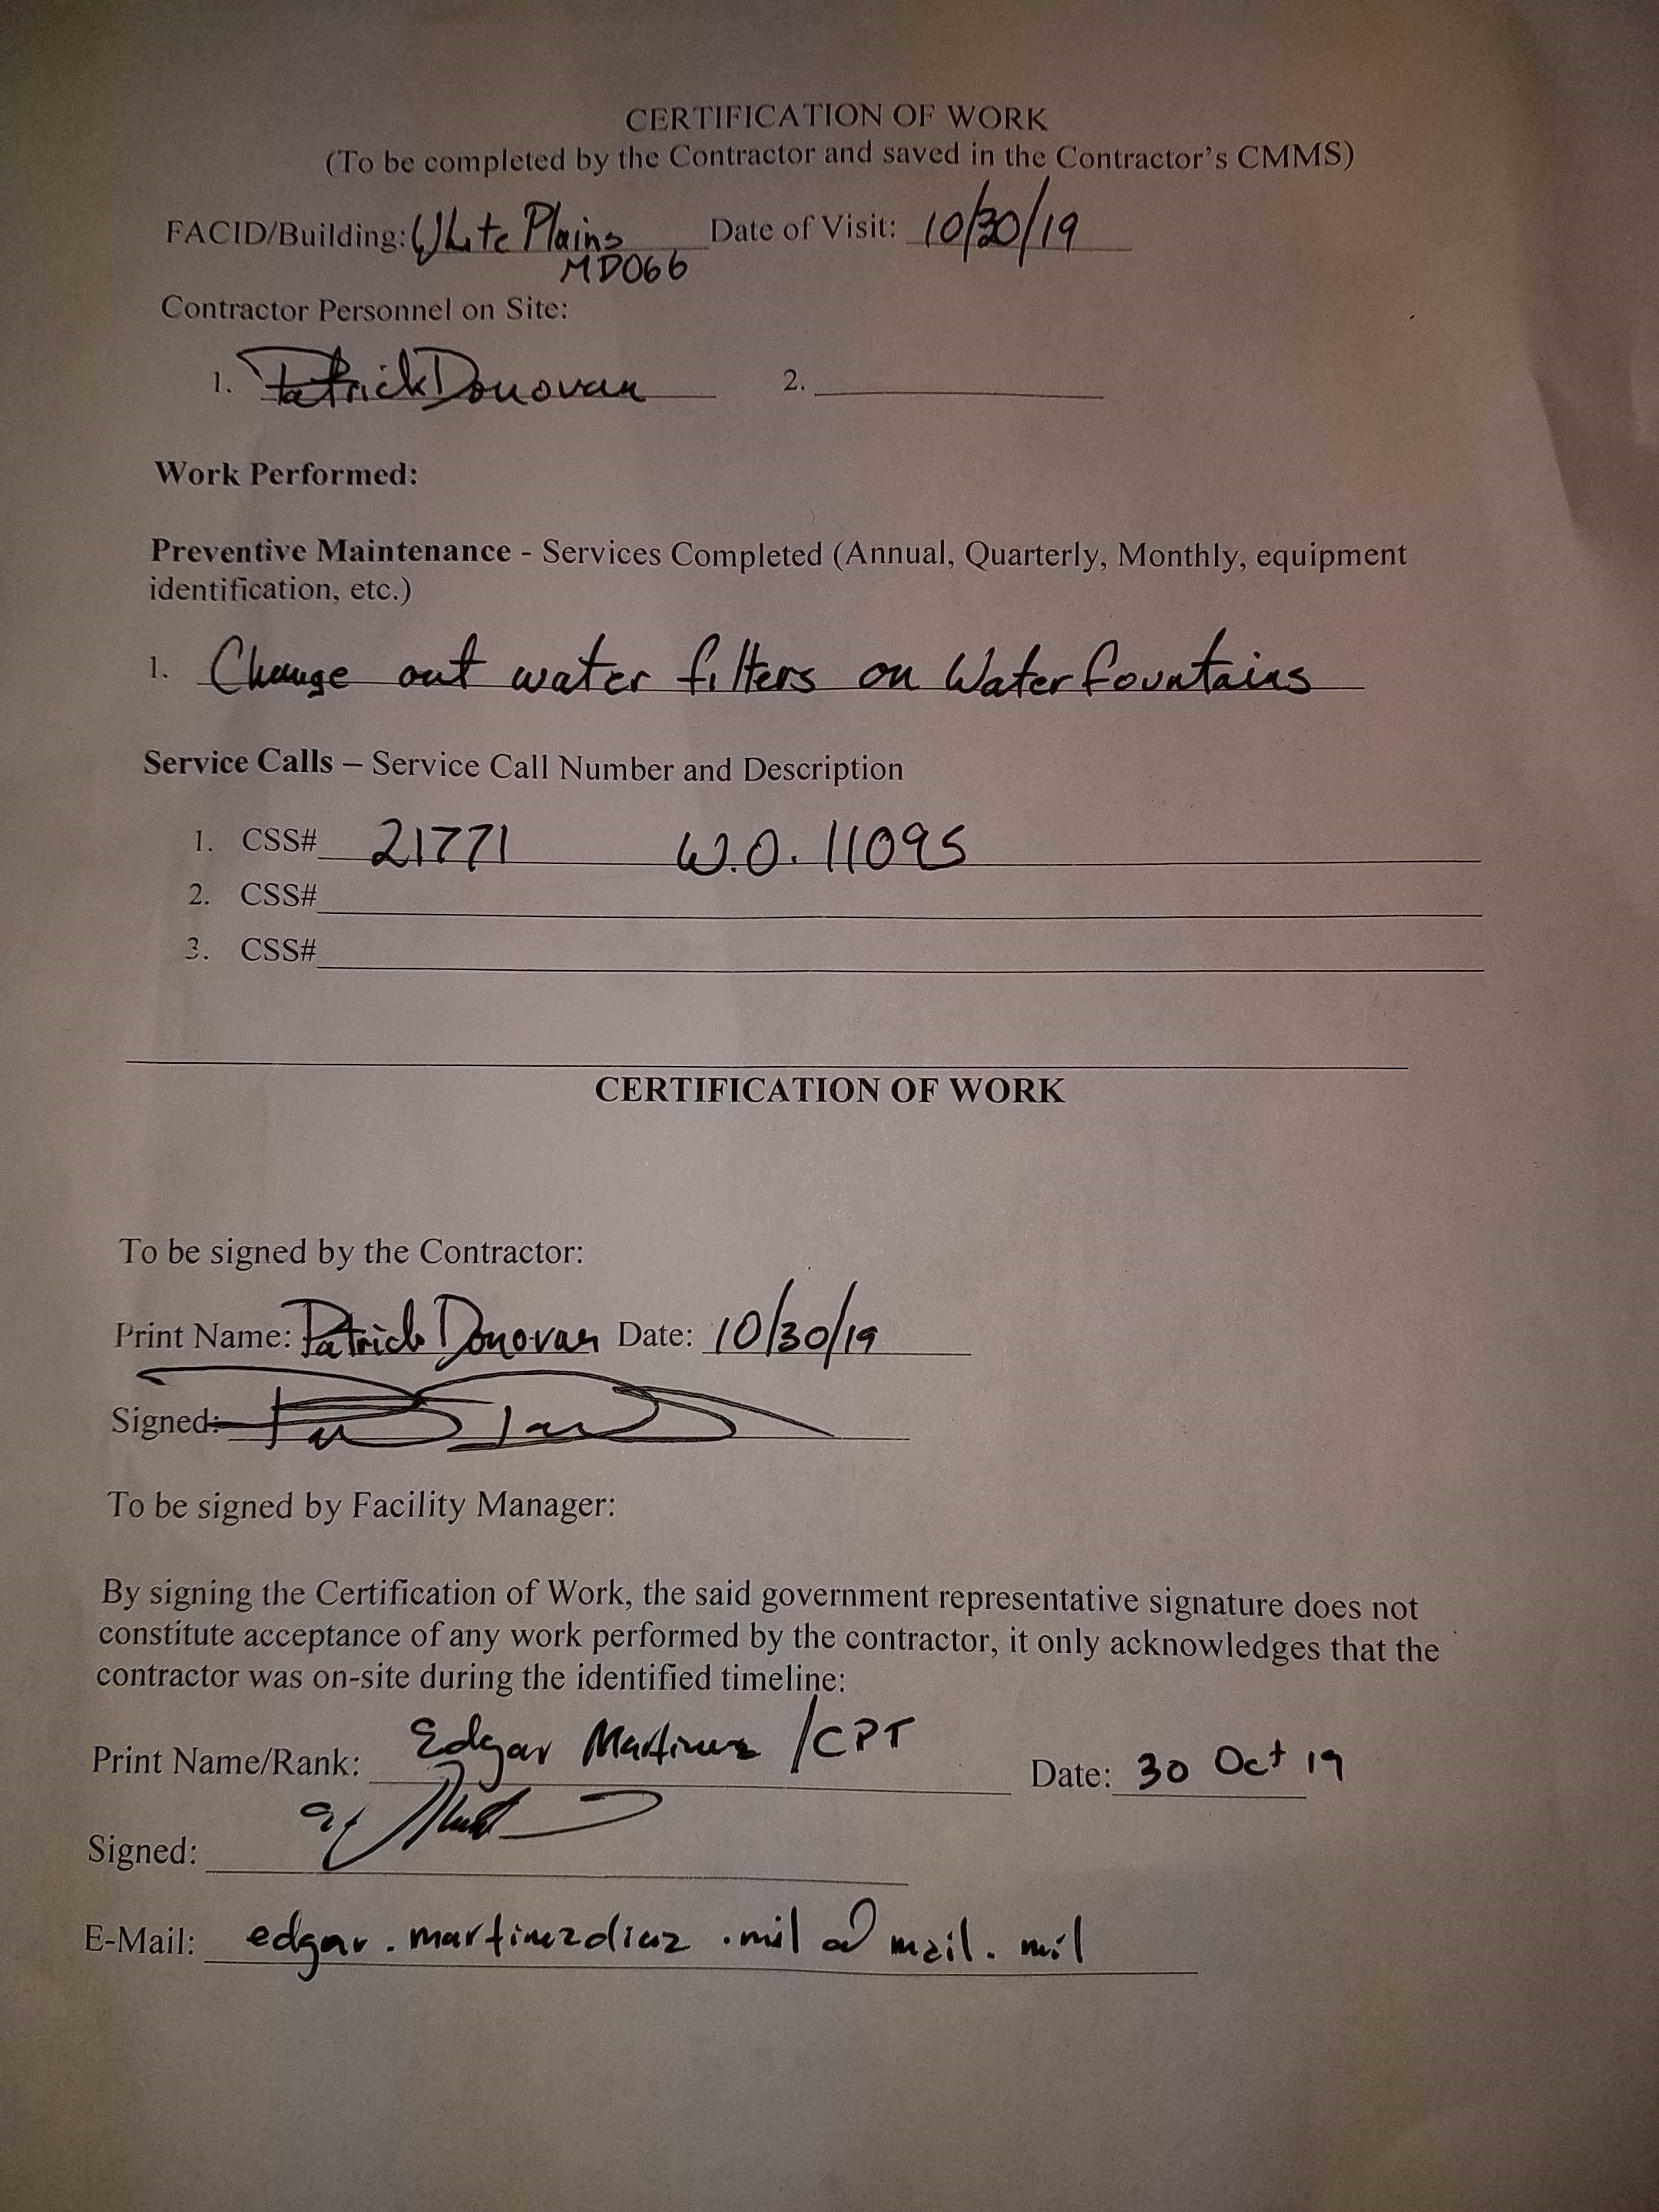 CERTIFICATION OF WORK
(To be completed by the Contractor and saved in the Contractor's CMMS)
FACID/Building: White Plains Date of Visit: 10/30/19
MD066
Contractor Personnel on Site:
1. Patrick Donovan 2.
Work Performed:
Preventive Maintenance - Services Completed (Annual, Quarterly, Monthly, equipment
identification, etc.)
1. Change out water filters on Water fountains
Service Calls – Service Call Number and Description
1. CSS# 21771 W.O. 11095
2. CSS#
3. CSS#
CERTIFICATION OF WORK
To be signed by the Contractor:
Print Name: Patrick Donovan Date: 10/30/19
Signed:
To be signed by Facility Manager:
By signing the Certification of Work, the said government representative signature does not
constitute acceptance of any work performed by the contractor, it only acknowledges that the
contractor was on-site during the identified timeline:
Print Name/Rank: Edgar Martinez /CPT Date: 30 Oct 19
Signed:
E-Mail: edgar.martinezdiaz.mil@mail.mil